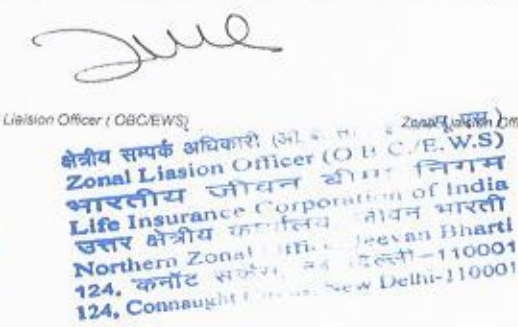 Liaision Officer ( OBC/EWS)
Zonal Liaision Off
क्षेत्रीय सम्पर्क अधिकारी
Zonal Liasion Officer (O B C./E.W.S)
भारतीय जीवन बीमा निगम
Life Insurance Corporation of India
उत्तर क्षेत्रीय कार्यालय जीवन भारती
Northern Zonal Office Jeevan Bharti
124, कनॉट सर्कस, नई दिल्ली-110001
124, Connaught Circus, New Delhi-110001